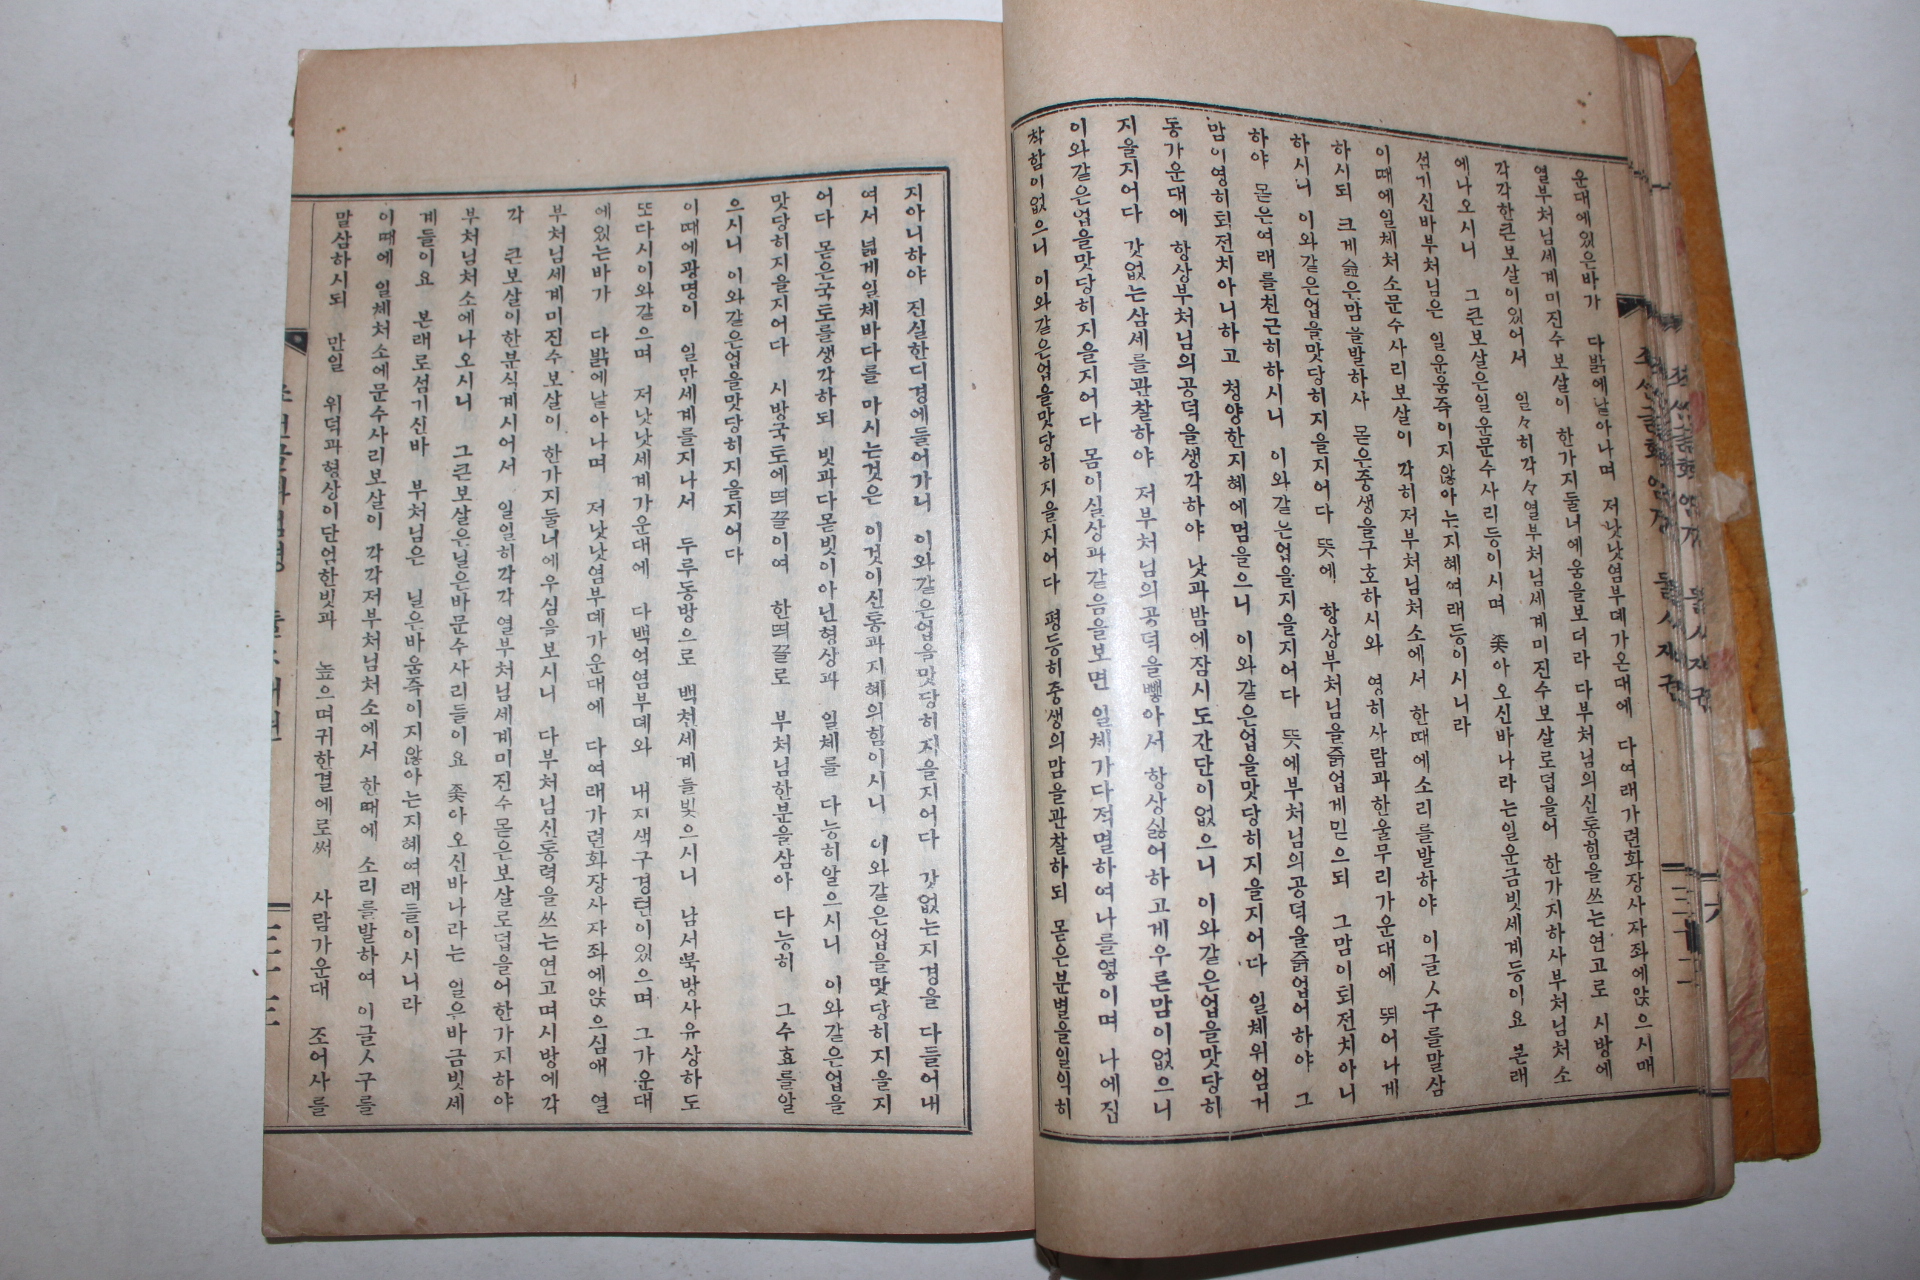 운대에있은바가 다밝에날아나며 저낫낫염부뎨가온대에 다여래가련화장사자좌에앉으시매
열부처님세계미진수보살이 한가지둘녀에움을보더라 다부처님의신통힘을쓰는연고로 시방에
각각한큰보살이있어서 일々히각々열부처님세계미진수보살로덥을어 한가지하사부처님처소
에나오시니 그큰보살은일운문수사리등이시며 좇아오신바나라는일운금빗세계등이요 본래
섬기신바부처님은 일운움즉이지않아는지혜여래등이시니라
이때에일체처소문수사리보살이 각히저부처님처소에서 한때에소리를발하야 이글人구를말삼
하시되 크게슯은맘을발하사 몯은중생을구호하시와 영히사람과한울무리가운대에 뛰어나게
하시니 이와같은업을맛당히지을지어다 뜻에 항상부처님을즑업게믿으되 그맘이퇴전치아니
하야 몯은여래를친근히하시니 이와같은업을지을지어다 뜻에부처님의공덕을즑업어하야 그
맘이영히퇴전치아니하고 청양한지혜에멈을으니 이와같은업을맛당히지을지어다 일체위엄거
동가운대에 항상부처님의공덕을생각하야 낫과밤에잠시도간단이없으니 이와같은업을맛당히
지을지어다 갓없는삼세를관찰하야 저부처님의공덕을빻아서 항상싫어하고게우른맘이없으니
이와같은업을맛당히지을지어다 몸이실상과같음을보면 일체가다적멸하여나를옇이며 나에집
착함이없으니 이와같은업을맛당히지을지어다 평등히중생의맘을관찰하되 몯은분별을일윽히
지아니하야 진실한디경에들어가니 이와같은업을맛당히지을지어다 갓없는지경을 다들어내
여서 넓게일체바다를 마시는것은 이것이신통과지혜의힘이시니 이와같은업을맛당히지을지
어다 몯은국토를생각하되 빗과다몯빗이아닌형상과 일체를 다능히알으시니 이와같은업을
맛당히지을지어다 시방국토에띄끌이여 한띄끌로 부처님한분을삼아 다능히 그수효를알
으시니 이와같은업을맛당히지을지어다
이때에광명이 일만세계를지나서 두루동방으로 백천세계들빛으시니 남서북방사유상하도
또다시이와같으며 저낫낫세계가운대에 다백억염부뎨와 내지색구경텬이있으며 그가운대
에있는바가 다밝에날아나며 저낫낫염부뎨가운대에 다여래가련화장사자좌에앉으심애 열
부처님세계미진수보살이 한가지둘녀에우심을보시니 다부처님신통력을쓰는연고며시방에각
각 큰보살이한분식계시어서 일일히각각 열부처님세계미진수몯은보살로덥을어한가지하야
부처님처소에나오시니 그큰보살은닐은바문수사리들이요 좇아오신바나라는 일은바금빗세
계들이요 본래로섬기신바 부처님은 닐은바움즉이지않아는지혜여래들이시니라
이때에 일체처소에문수사리보살이 각각저부처님처소에서 한때에 소리를발하여 이글人구를
말삼하시되 만일 위덕과형상이단엄한빗과 높으며귀한결에로써 사람가운대 조어사를